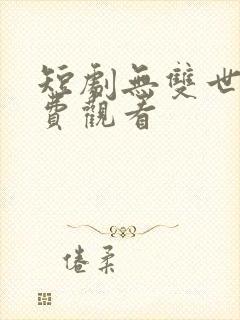 短劇無雙世
費觀看
倦柔